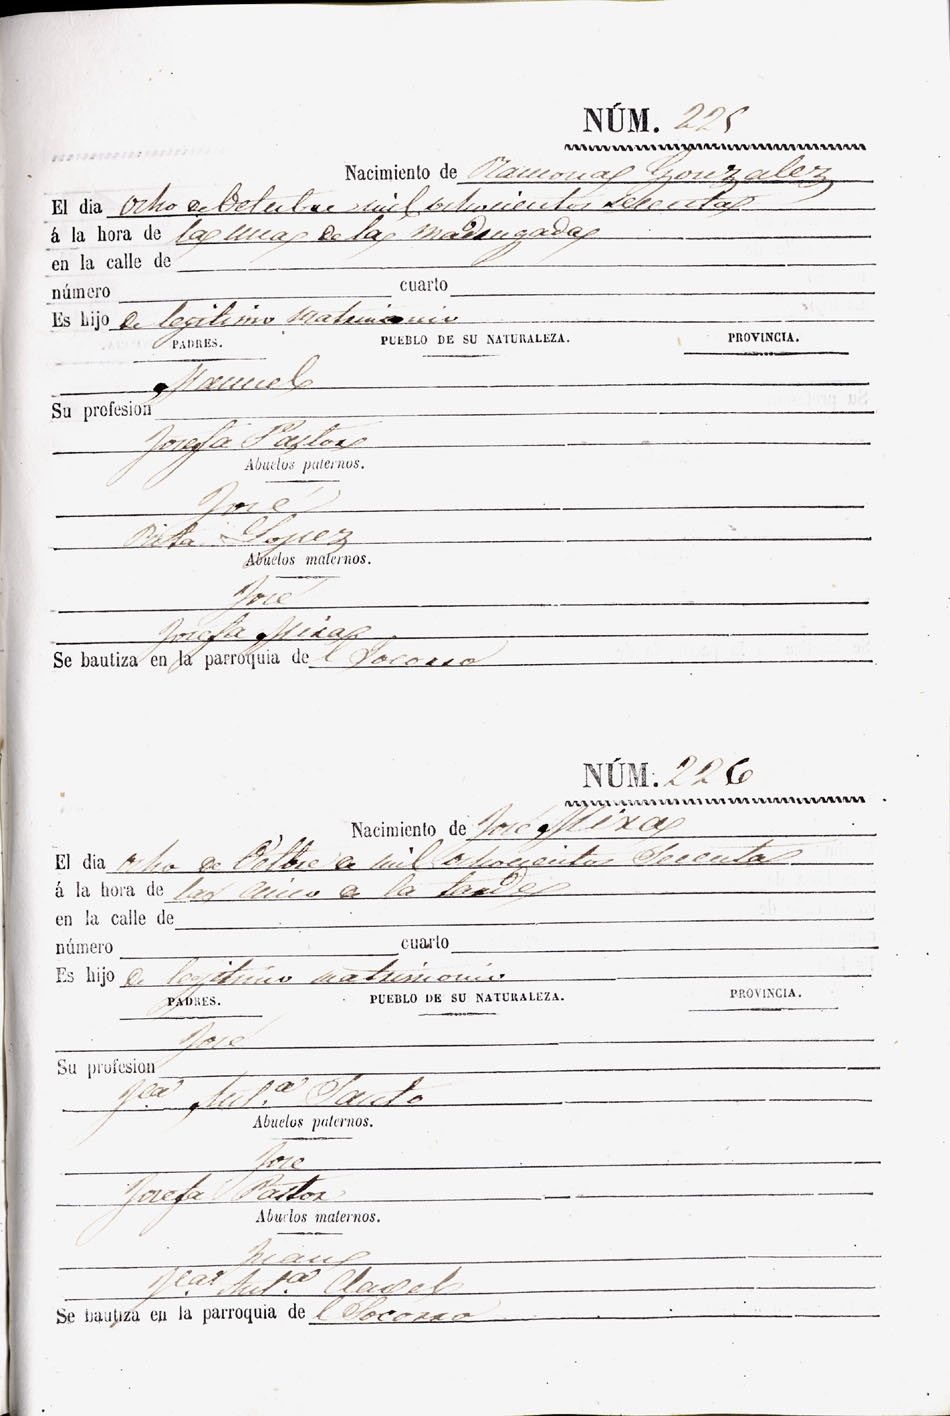 NÚM. 225
Nacimiento de Ramona Gonzalez
El dia ocho de Octubre mil ochocientos setenta
á la hora de la una de la madrugada
en la calle de
número cuarto
Es hijo de legitimo matrimonio
PADRES. PUEBLO DE SU NATURALEZA. PROVINCIA.
Manuel
Su profesion
Josefa Pastor
Abuelos paternos.
José
Rita Lopez
Abuelos maternos.
José
Josefa Mira
Se bautiza en la parroquia de l Socorro
NÚM. 226
Nacimiento de José Mira
El dia ocho de Octbre de mil ochocientos Setenta
á la hora de las cinco de la tarde
en la calle de
número cuarto
Es hijo de legitimo matrimonio
PADRES. PUEBLO DE SU NATURALEZA. PROVINCIA.
José
Su profesion
Antª
Abuelos paternos.
Jose
Josefa Pastor
Abuelos maternos.
Antª Clavel
Se bautiza en la parroquia de l Socorro